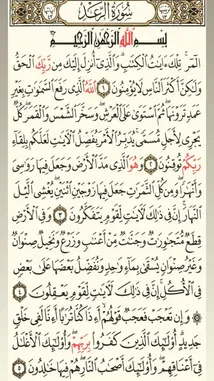 سُورَةُ الرَّعْدِ
بِسْمِ اللَّهِ الرَّحْمَٰنِ الرَّحِيمِ
الٓمٓرۚ تِلْكَ ءَايَٰتُ ٱلْكِتَٰبِۗ وَٱلَّذِىٓ أُنزِلَ إِلَيْكَ مِن رَّبِّكَ ٱلْحَقُّ
وَلَٰكِنَّ أَكْثَرَ ٱلنَّاسِ لَا يُؤْمِنُونَ ١ ٱللَّهُ ٱلَّذِى رَفَعَ ٱلسَّمَٰوَٰتِ بِغَيْرِ
عَمَدٍ تَرَوْنَهَاۖ ثُمَّ ٱسْتَوَىٰ عَلَى ٱلْعَرْشِۖ وَسَخَّرَ ٱلشَّمْسَ وَٱلْقَمَرَۖ كُلٌّ
يَجْرِى لِأَجَلٍ مُّسَمًّىۚ يُدَبِّرُ ٱلْأَمْرَ يُفَصِّلُ ٱلْءَايَٰتِ لَعَلَّكُم بِلِقَآءِ
رَبِّكُمْ تُوقِنُونَ ٢ وَهُوَ ٱلَّذِى مَدَّ ٱلْأَرْضَ وَجَعَلَ فِيهَا رَوَٰسِىَ
وَأَنْهَٰرًاۖ وَمِن كُلِّ ٱلثَّمَرَٰتِ جَعَلَ فِيهَا زَوْجَيْنِ ٱثْنَيْنِۖ يُغْشِى ٱلَّيْلَ
ٱلنَّهَارَۚ إِنَّ فِى ذَٰلِكَ لَءَايَٰتٍ لِّقَوْمٍ يَتَفَكَّرُونَ ٣ وَفِى ٱلْأَرْضِ
قِطَعٌ مُّتَجَٰوِرَٰتٌ وَجَنَّٰتٌ مِّنْ أَعْنَٰبٍ وَزَرْعٌ وَنَخِيلٌ صِنْوَانٌ
وَغَيْرُ صِنْوَانٍ يُسْقَىٰ بِمَآءٍ وَٰحِدٍ وَنُفَضِّلُ بَعْضَهَا عَلَىٰ بَعْضٍ
فِى ٱلْأُكُلِۚ إِنَّ فِى ذَٰلِكَ لَءَايَٰتٍ لِّقَوْمٍ يَعْقِلُونَ ٤
وَإِن تَعْجَبْ فَعَجَبٌ قَوْلُهُمْ أَءِذَا كُنَّا تُرَٰبًا أَءِنَّا لَفِى خَلْقٍ
جَدِيدٍۗ أُو۟لَٰٓئِكَ ٱلَّذِينَ كَفَرُوا۟ بِرَبِّهِمْۖ وَأُو۟لَٰٓئِكَ ٱلْأَغْلَٰلُ
فِىٓ أَعْنَاقِهِمْۖ وَأُو۟لَٰٓئِكَ أَصْحَٰبُ ٱلنَّارِۖ هُمْ فِيهَا خَٰلِدُونَ ٥